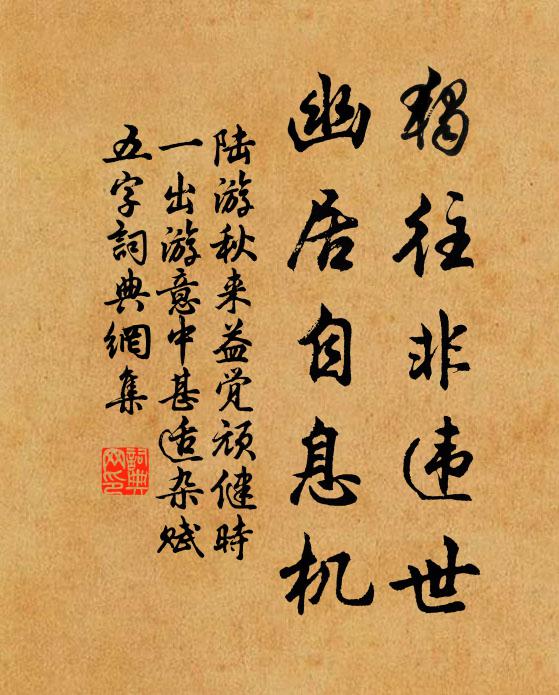 独往非违世
幽居自息机
陆游秋来益觉顽健時
一出游意中甚适杂赋
五字詞典網集
詞典
网印